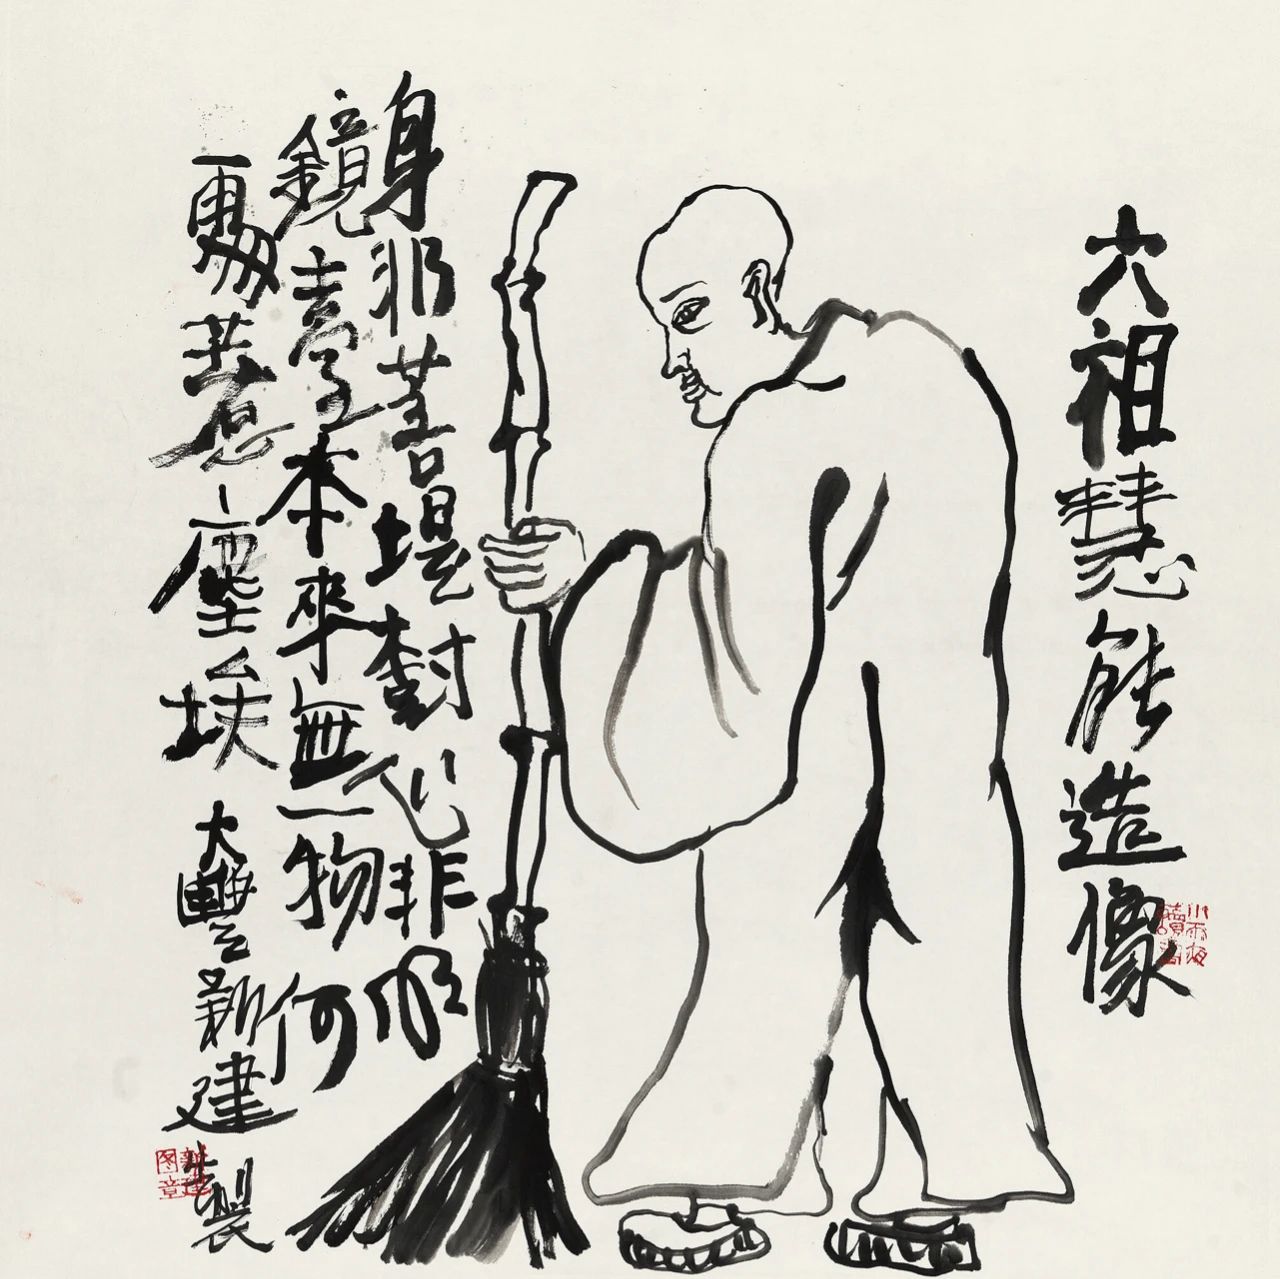 六祖慧能造像
小雨夜
讀書
身非菩堤樹心非明
鏡臺本來無一物何
處惹塵埃 大豐新建製
新建
图章